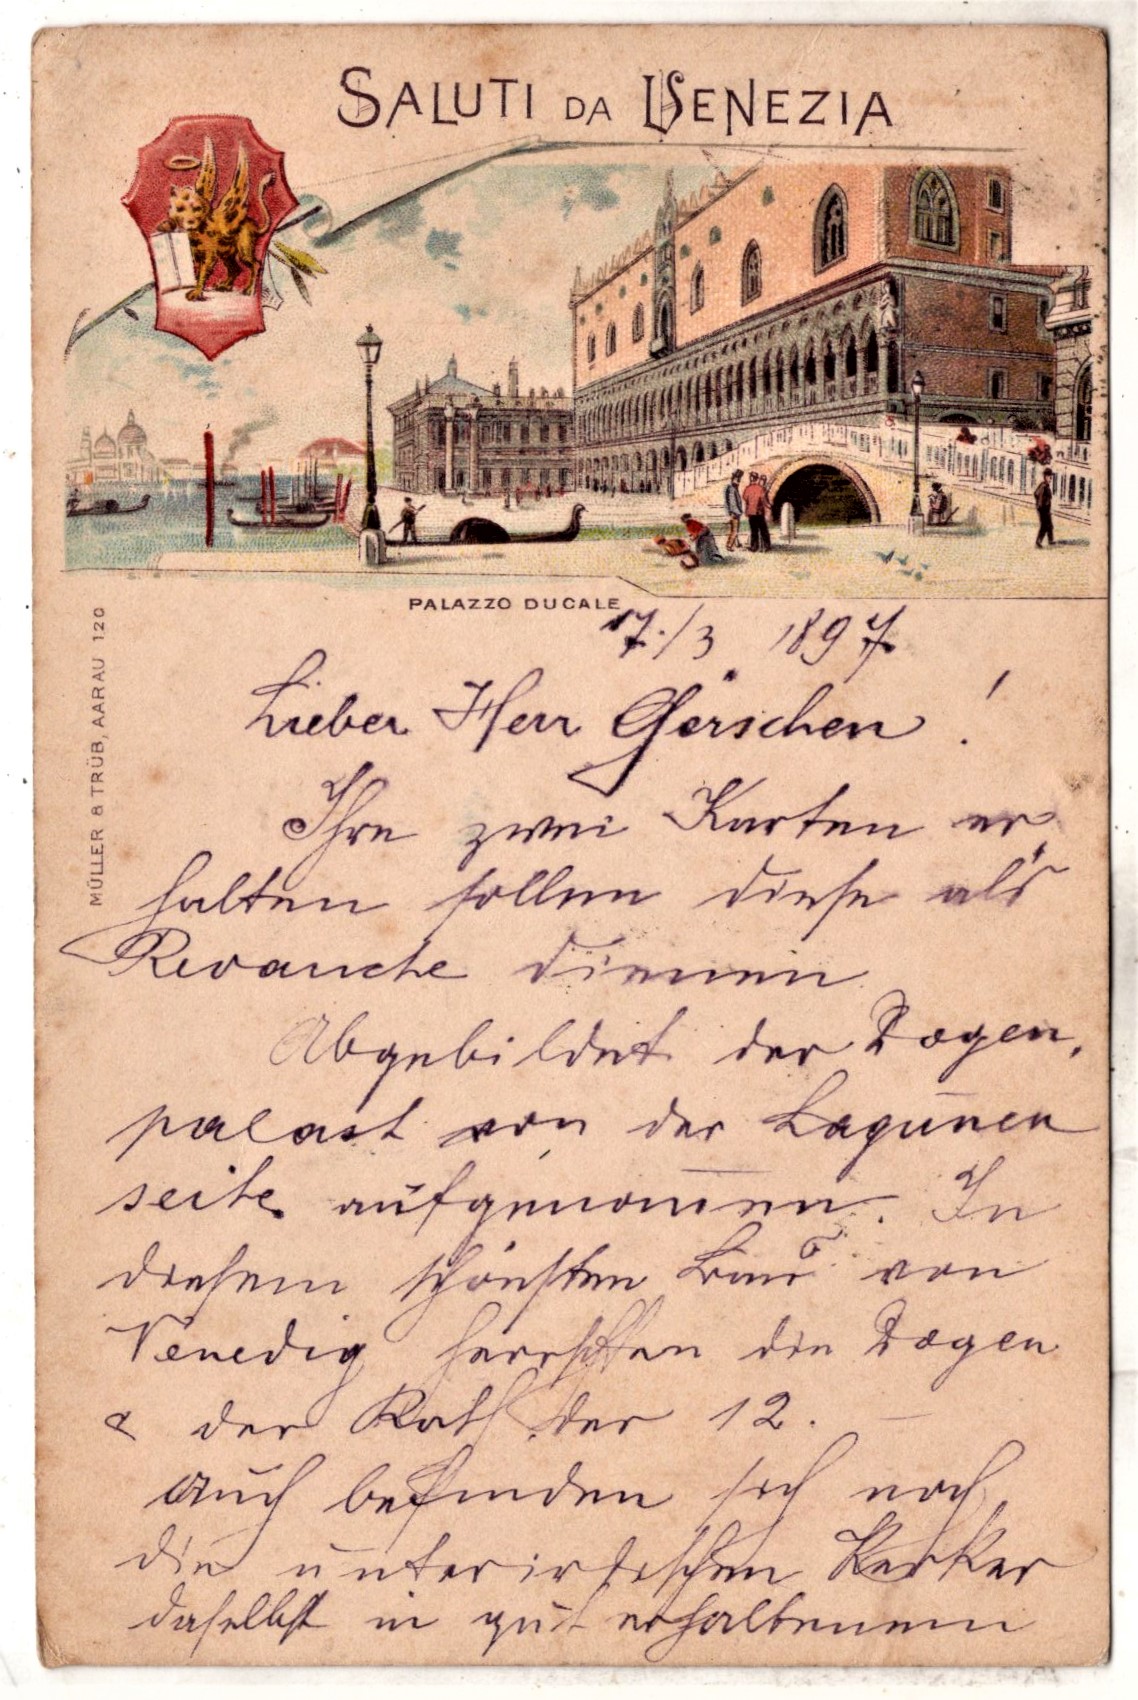 SALUTI DA VENEZIA
PALAZZO DUCALE
MÜLLER & TRÜB, AARAU 120
17./3 1897
Lieber Herr Görschen!
Ihre zwei Karten er
halten sollen diese als
Revanche dienen
Abgebildet der Dogen,
palast von der Lagunen
seite aufgenommen. In
diesem schönsten Bau von
Venedig herrschten die Dogen
& der Rath der 12.
auch befinden sich noch
die unterirdischen Kerker
daselbst in gut erhaltenem